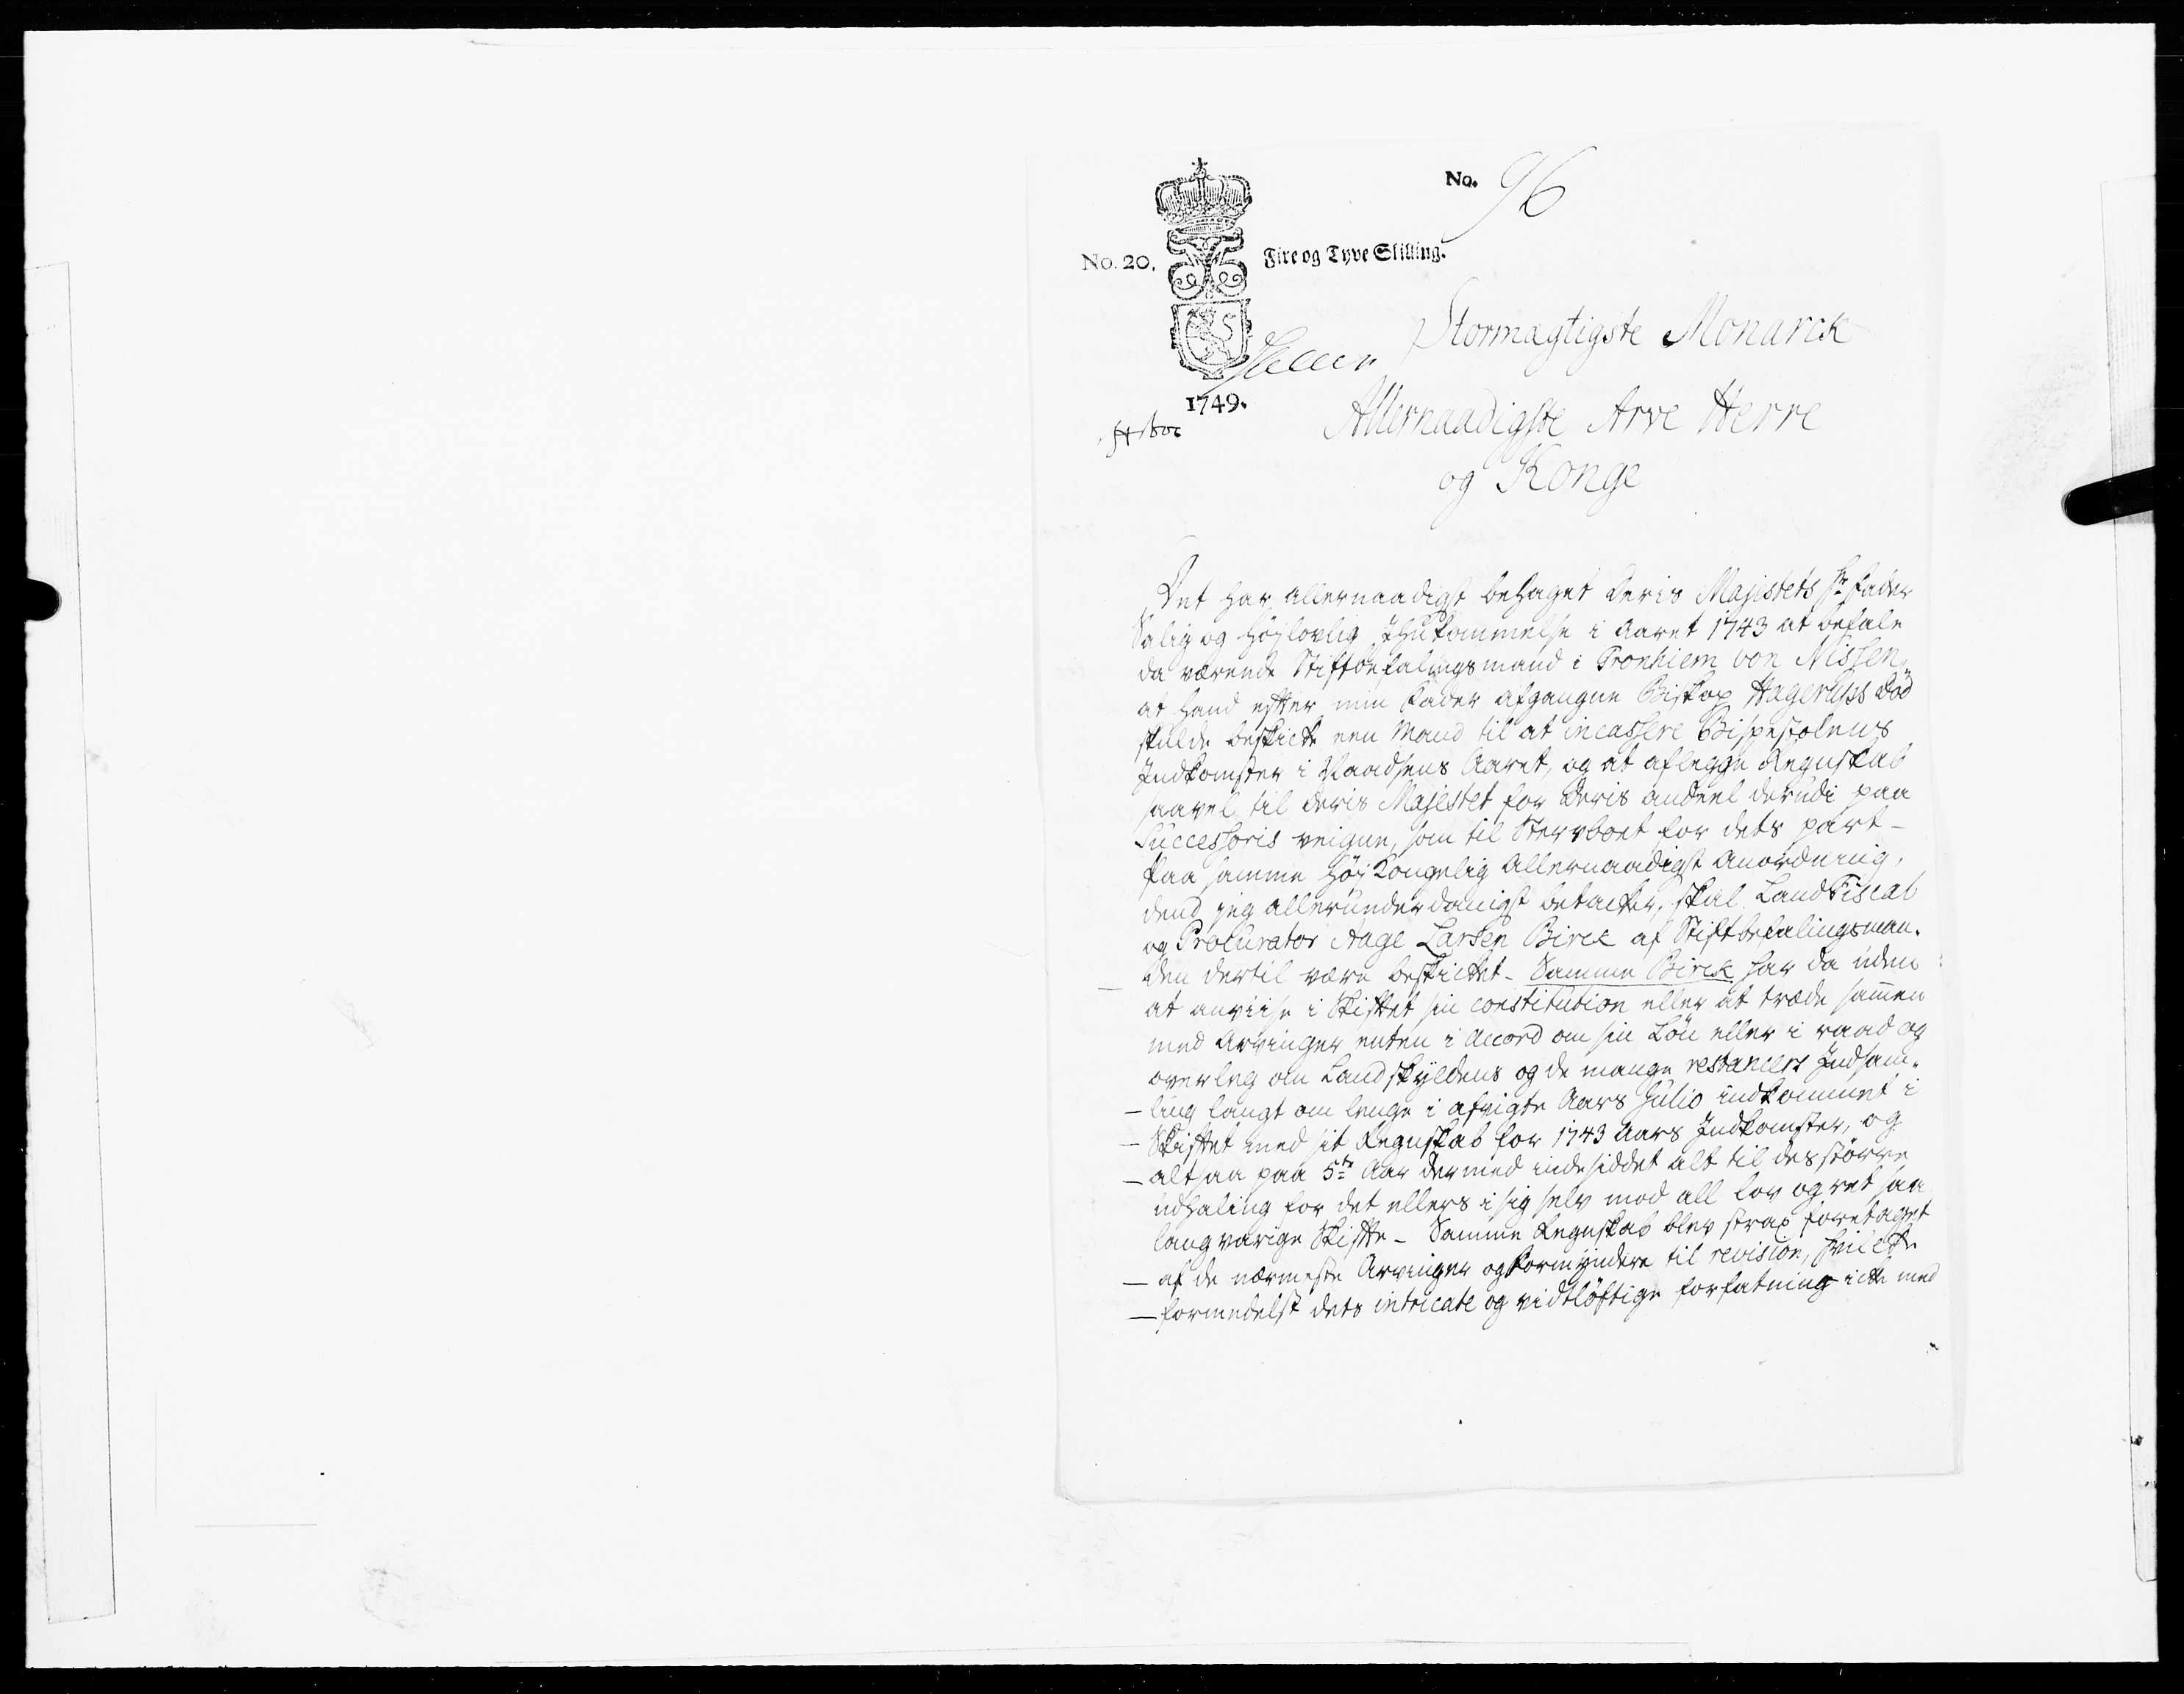 No. 96
No. 20. Fire og Tyve Skilling.
Stormagtigste Monarck
1749.
Allernaadigste Arve Herre
og Konge
Det har allernaadigst behaget Deris Majestets Hr Fader
Salig og Højlovlig Ihukommelse i Aaret 1743 at befale
da værende Stiftbefalingsmand i Tronhiem von Nissen,
at hand efter min Fader afgangne Biskop Hagerups Död
skulde beskicke een Mand til at incassere Bispestolens
Indkomster i Naadsens Aaret, og at aflegge Regnskab
saavel til Deris Majestet for Deris andeel derudi paa
Successoris veigne, som til Stervboet for dets part -
Paa samme høj Kongelig Allernaadigst Anordning,
dend jeg allerunderdanigst betacker, skal Land Fiscal
og Procurator Aage Larsen Birck af Stiftbefalingsman-
den dertil være beskicket - Samme Birck har da uden
at anviise i Skiftet sin constitution eller at træde sammen
med Arvinger enten i Accord om sin Lön eller i raad og
overleg om Landskyldens og de mange restancers Indsam-
- ling langt om lenge i afvigte Aars Julio indkommet i
- Skiftet med sit Regnskab for 1743 Aars Indkomster, og
- altsaa paa 5te Aar dermed indesiddet alt til des större
udhaling for det ellers i sig selv mod all lov og ret saa
langvarige Skifte - Samme Regnskab blev strax foretaget
- af de nærmeste Arvinger og Formyndere til revision, hvilcke
- formedelst dets intricate og vidtlöftige forfatning icke med